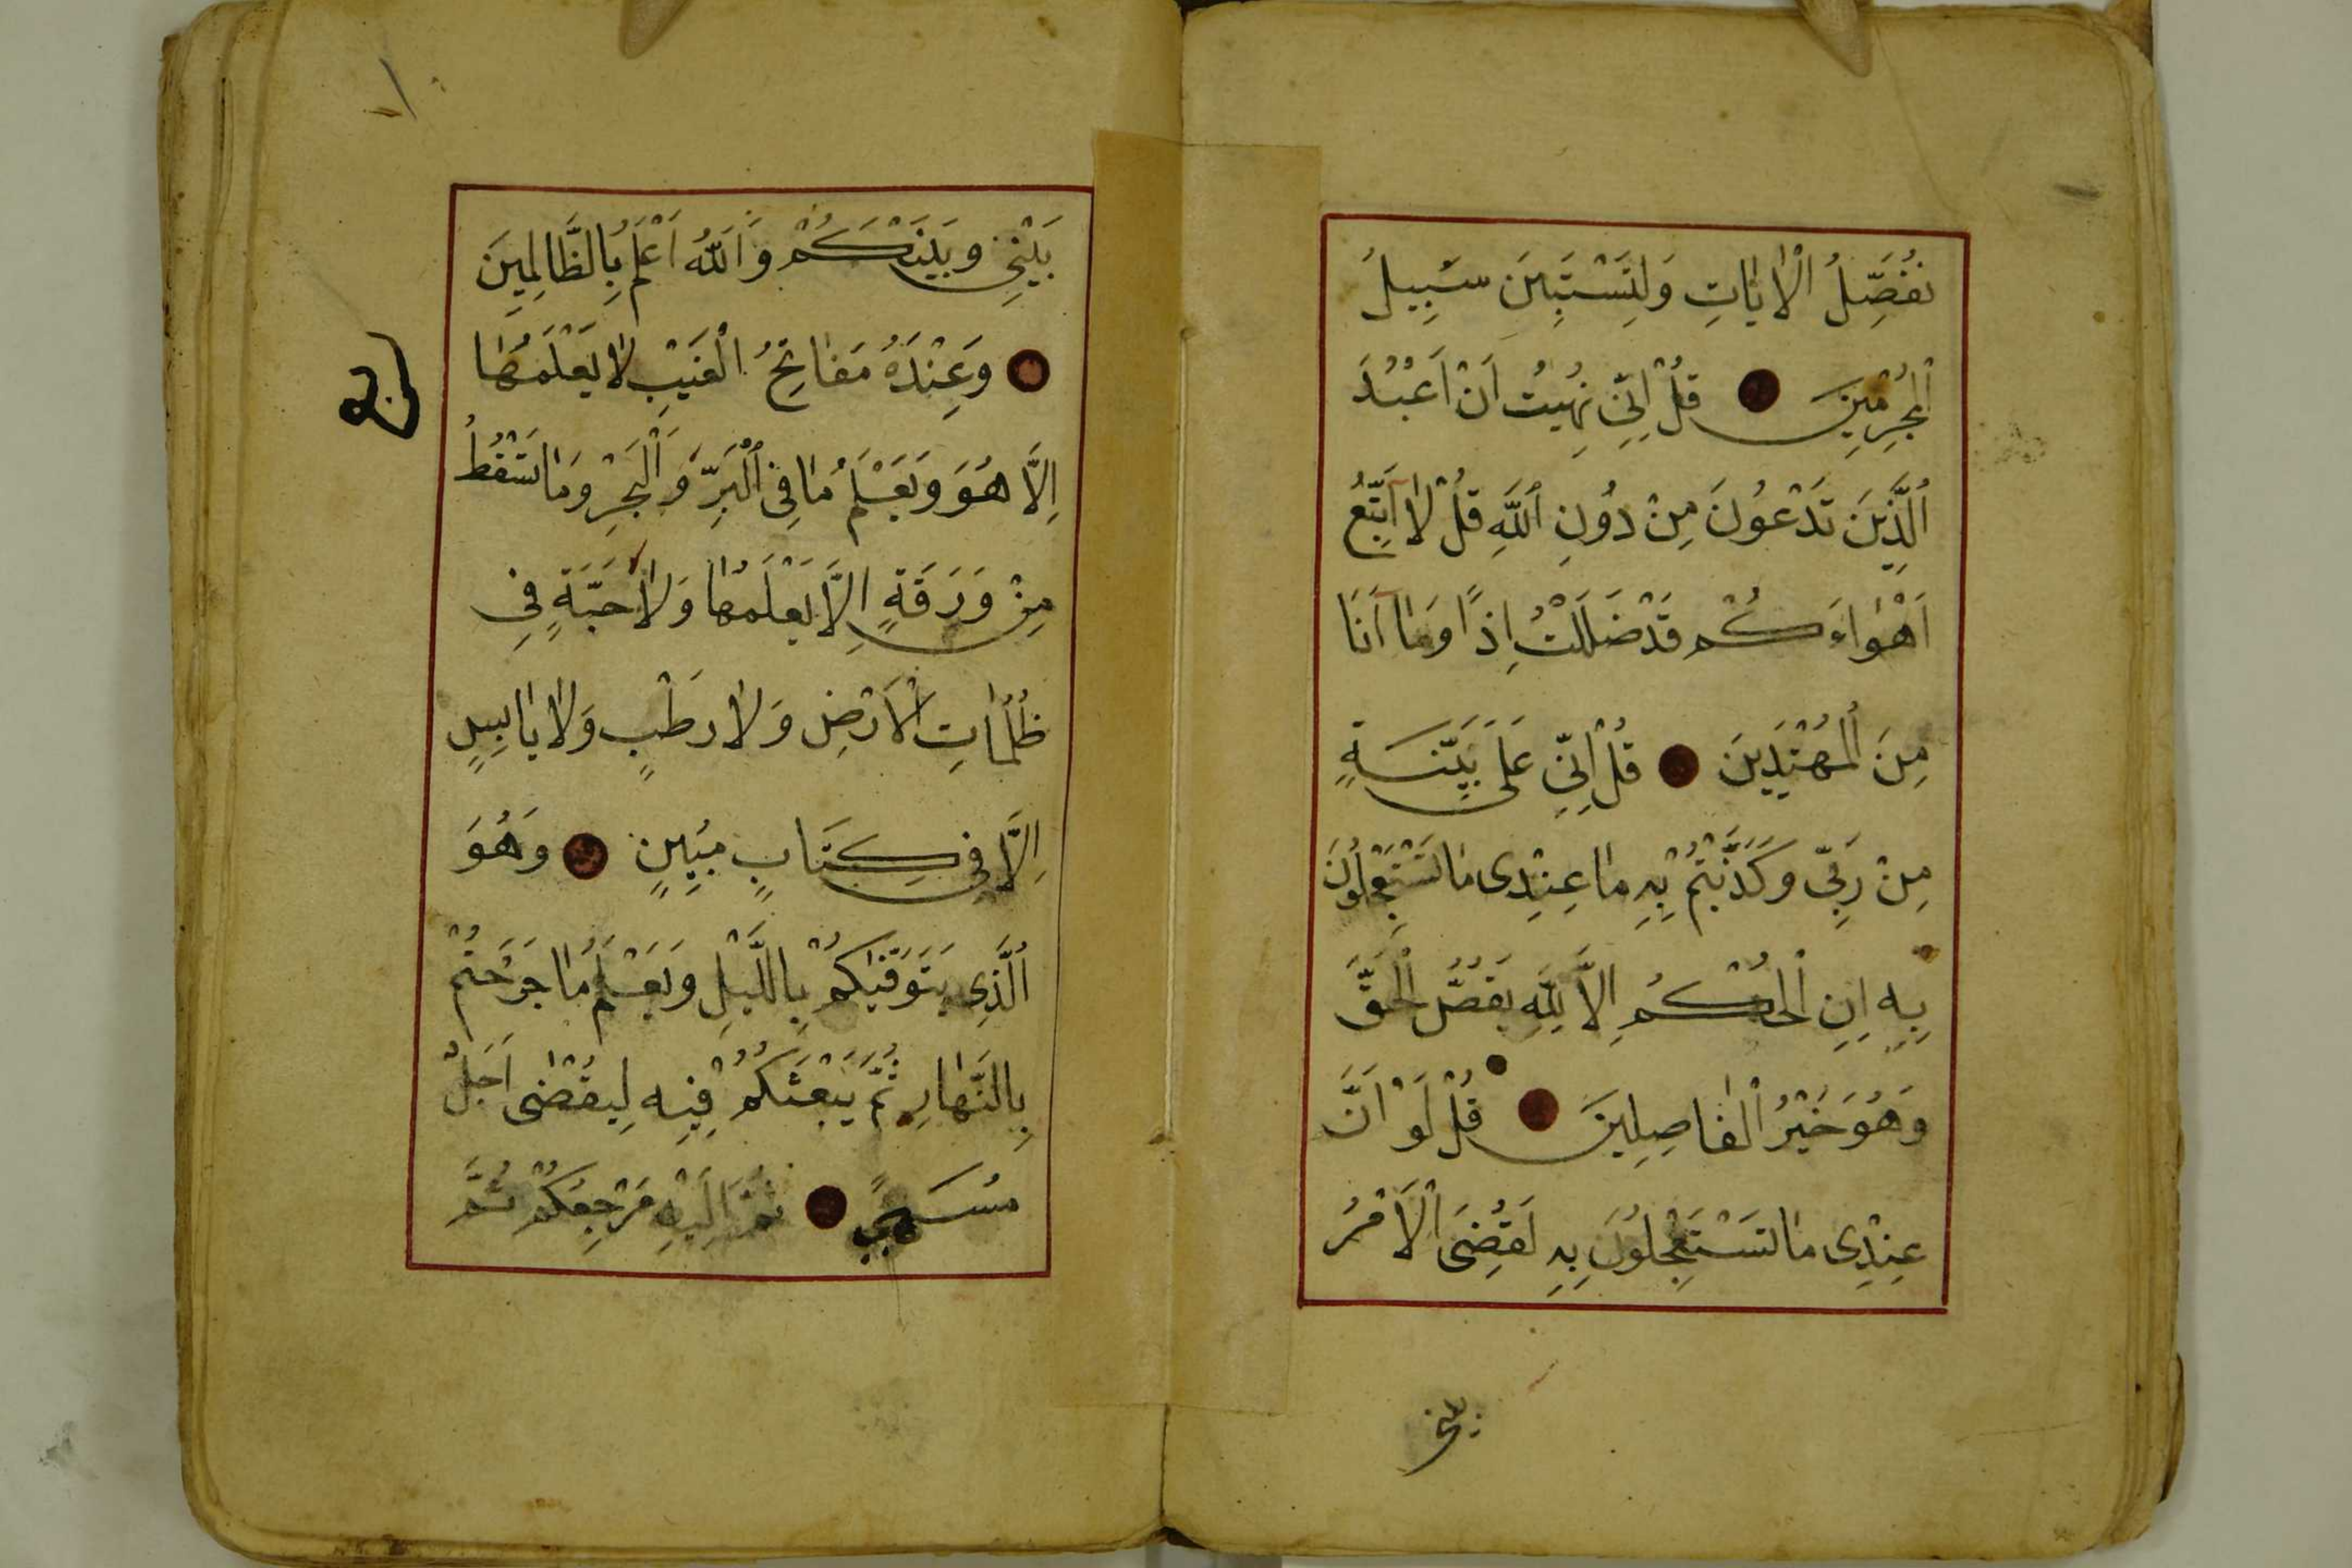 نُفَصِّلُ الْاٰيَاتِ وَلِتَسْتَبِينَ سَبِيلُ
الْمُجْرِمِينَ قُلْ اِنِّي نُهِيتُ اَنْ اَعْبُدَ
الَّذِينَ تَدْعُونَ مِنْ دُونِ اللّٰهِ قُلْ لَا اَتَّبِعُ
اَهْوَاءَكُمْ قَدْ ضَلَلْتُ اِذًا وَمَا اَنَا
مِنَ الْمُهْتَدِينَ قُلْ اِنِّي عَلَى بَيِّنَةٍ
مِنْ رَبِّي وَكَذَّبْتُمْ بِهِ مَا عِنْدِى مَا تَسْتَعْجِلُونَ
بِهِ اِنِ الْحُكْمُ اِلَّا لِلّٰهِ يَقُصُّ الْحَقَّ
وَهُوَ خَيْرُ الْفَاصِلِينَ قُلْ لَوْ اَنَّ
عِنْدِى مَا تَسْتَعْجِلُونَ بِهِ لَقُضِىَ الْاَمْرُ
بيني
بَيْنِي وَبَيْنَكُمْ وَاللّٰهُ اَعْلَمُ بِالظَّالِمِينَ
وَعِنْدَهُ مَفَاتِحُ الْغَيْبِ لَا يَعْلَمُهَا
اِلَّا هُوَ وَيَعْلَمُ مَا فِى الْبَرِّ وَالْبَحْرِ وَمَا تَسْقُطُ
مِنْ وَرَقَةٍ اِلَّا يَعْلَمُهَا وَلَا حَبَّةٍ فِي
ظُلُمَاتِ الْاَرْضِ وَلَا رَطْبٍ وَلَا يَابِسٍ
اِلَّا فِي كِتَابٍ مُبِينٍ وَهُوَ
الَّذِى يَتَوَفّٰيكُمْ بِاللَّيْلِ وَيَعْلَمُ مَا جَرَحْتُمْ
بِالنَّهَارِ ثُمَّ يَبْعَثُكُمْ فِيهِ لِيُقْضٰى اَجَلٌ
مُسَمًّى ثُمَّ اِلَيْهِ مَرْجِعُكُمْ ثُمَّ